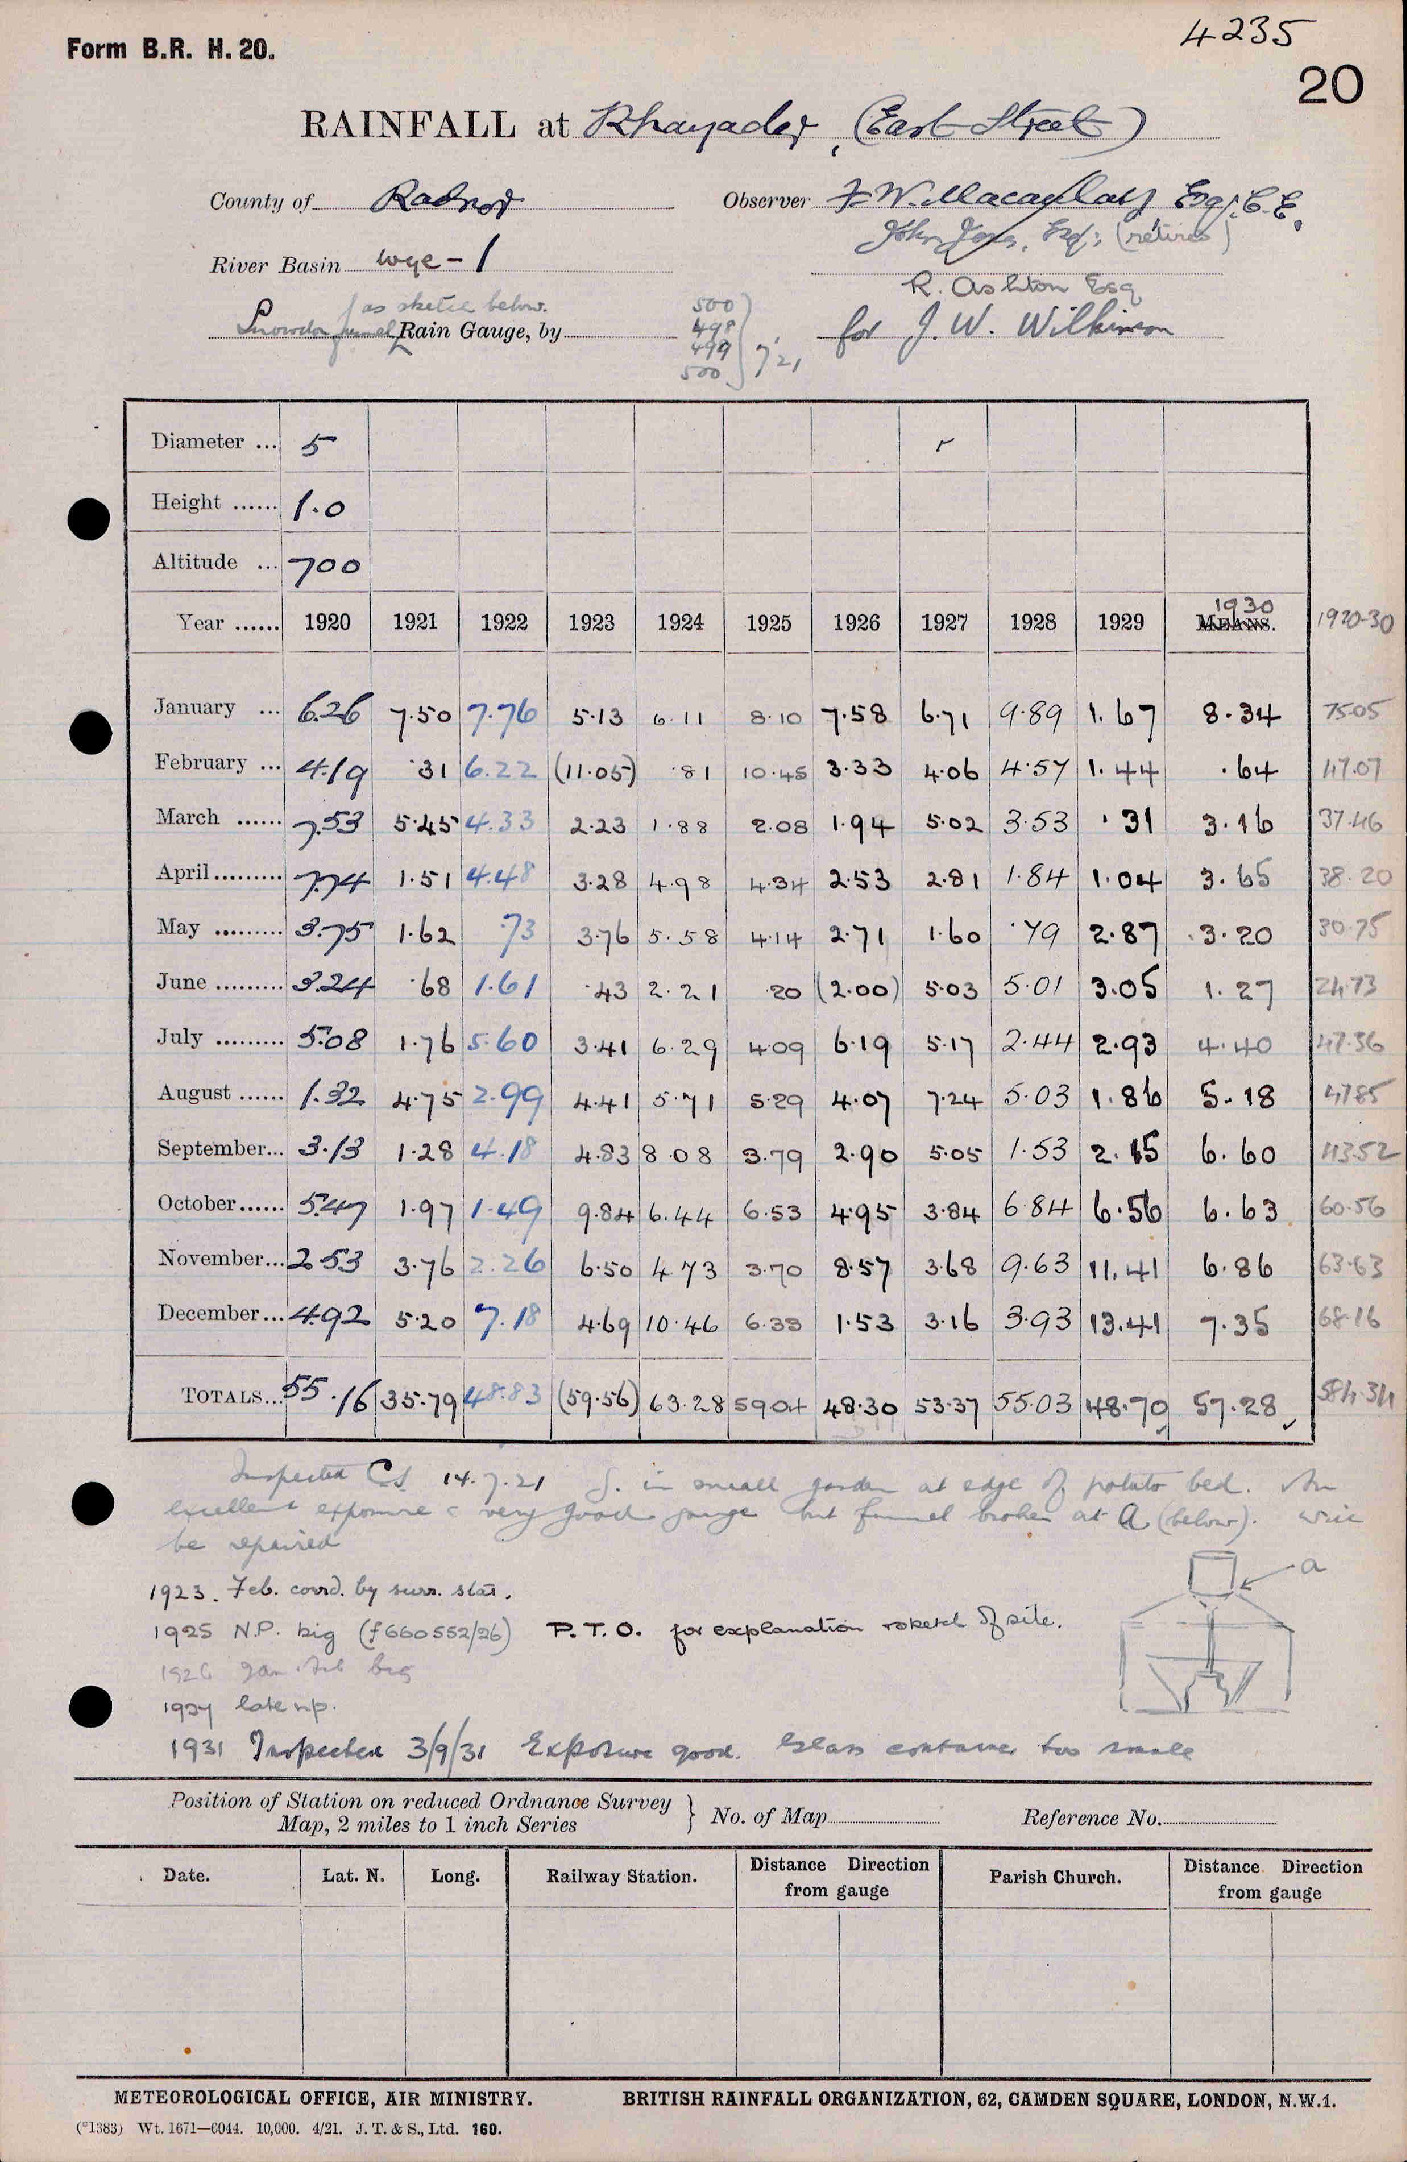 Form B.R. H. 20.
4235
20
RAINFALL at Rhayader, (East Street)
County of Radnor Observer F W. Macaulay Esq; C.E.
John Jones, Esq; (retired)
River Basin Wye - 1
R. Ashton Esq
as sketch below. 500
Snowdon funnel Rain Gauge, by 498 for J. W. Wilkinson
499 7.'21
500
Diameter ... 5
Height ...... 1.0
Altitude ... 700
Year ...... 1920 1921 1922 1923 1924 1925 1926 1927 1928 1929 MEANS. 1930 1920-30
January ... 6.26 7.50 7.76 5.13 6.11 8.10 7.58 6.71 9.89 1.67 8.34 75.05
February ... 4.19 .31 6.22 (11.05) .81 10.45 3.33 4.06 4.57 1.44 .64 47.07
March ...... 7.53 5.45 4.33 2.23 1.88 2.08 1.94 5.02 3.53 .31 3.16 37.46
April......... 7.74 1.51 4.48 3.28 4.98 4.34 2.53 2.81 1.84 1.04 3.65 38.20
May ......... 3.75 1.62 .73 3.76 5.58 4.14 2.71 1.60 .79 2.87 3.20 30.75
June ......... 3.24 .68 1.61 .43 2.21 .20 (2.00) 5.03 5.01 3.05 1.27 24.73
July ......... 5.08 1.76 5.60 3.41 6.29 4.09 6.19 5.17 2.44 2.93 4.40 47.36
August ...... 1.32 4.75 2.99 4.41 5.71 5.29 4.07 7.24 5.03 1.86 5.18 47.85
September... 3.13 1.28 4.18 4.83 8.08 3.79 2.90 5.05 1.53 2.15 6.60 43.52
October...... 5.47 1.97 1.49 9.84 6.44 6.53 4.95 3.84 6.84 6.56 6.63 60.56
November... 2.53 3.76 2.26 6.50 4.73 3.70 8.57 3.68 9.63 11.41 6.86 63.63
December... 4.92 5.20 7.18 4.69 10.46 6.33 1.53 3.16 3.93 13.41 7.35 68.16
TOTALS... 55.16 35.79 48.83 (59.56) 63.28 59.04 48.30 53.37 55.03 48.70 57.28 584.34
Inspected CS 14.7.21 G. in small garden at edge of potato bed. An
excellent exposure & very good gauge but funnel broken at a (below). Will
be repaired
a
1923. Feb. coord. by surr. stas.
1925 N.P. big (f660552/26) P.T.O. for explanation & sketch of site.
1926 Jan. Feb big
1927 late n.p.
1931 Inspected 3/9/31 Exposure good. Glass container too small
Position of Station on reduced Ordnance Survey
Map, 2 miles to 1 inch Series } No. of Map Reference No.
Date. Lat. N. Long. Railway Station. Distance Direction from gauge Parish Church. Distance Direction from gauge
METEOROLOGICAL OFFICE, AIR MINISTRY. BRITISH RAINFALL ORGANIZATION, 62, CAMDEN SQUARE, LONDON, N.W.1.
(*1383) Wt. 1671—C044. 10,000. 4/21. J. T. & S., Ltd. 160.